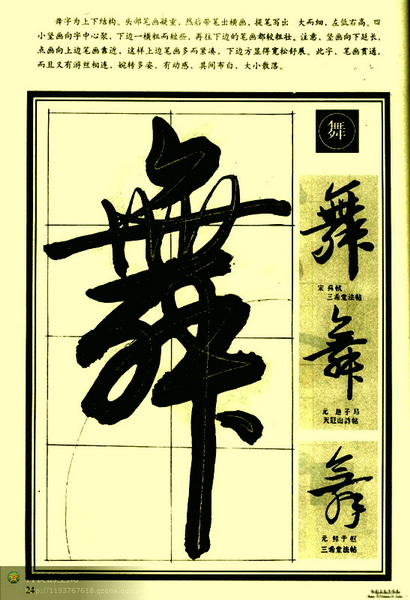 舞字为上下结构。头部笔画凝重，然后带笔写出一大而细，左低右高。四
小竖画向字中心聚，下边一横粗而短些，再往下边的笔画都较粗壮。注意，竖画向下延长，
点画向上边笔画靠近，这样上边笔画多而紧凑，下边方显得宽松舒展。此字，笔画贯通，
而且又有游丝相连，婉转多姿，有动感。其间布白，大小散落。
舞
舞
舞
宋 吴琚
三希堂法帖
舞
元 赵子昂
天冠山诗帖
舞
元 鲜于枢
三希堂法帖
24
http://1193767618.qzone.qq.com